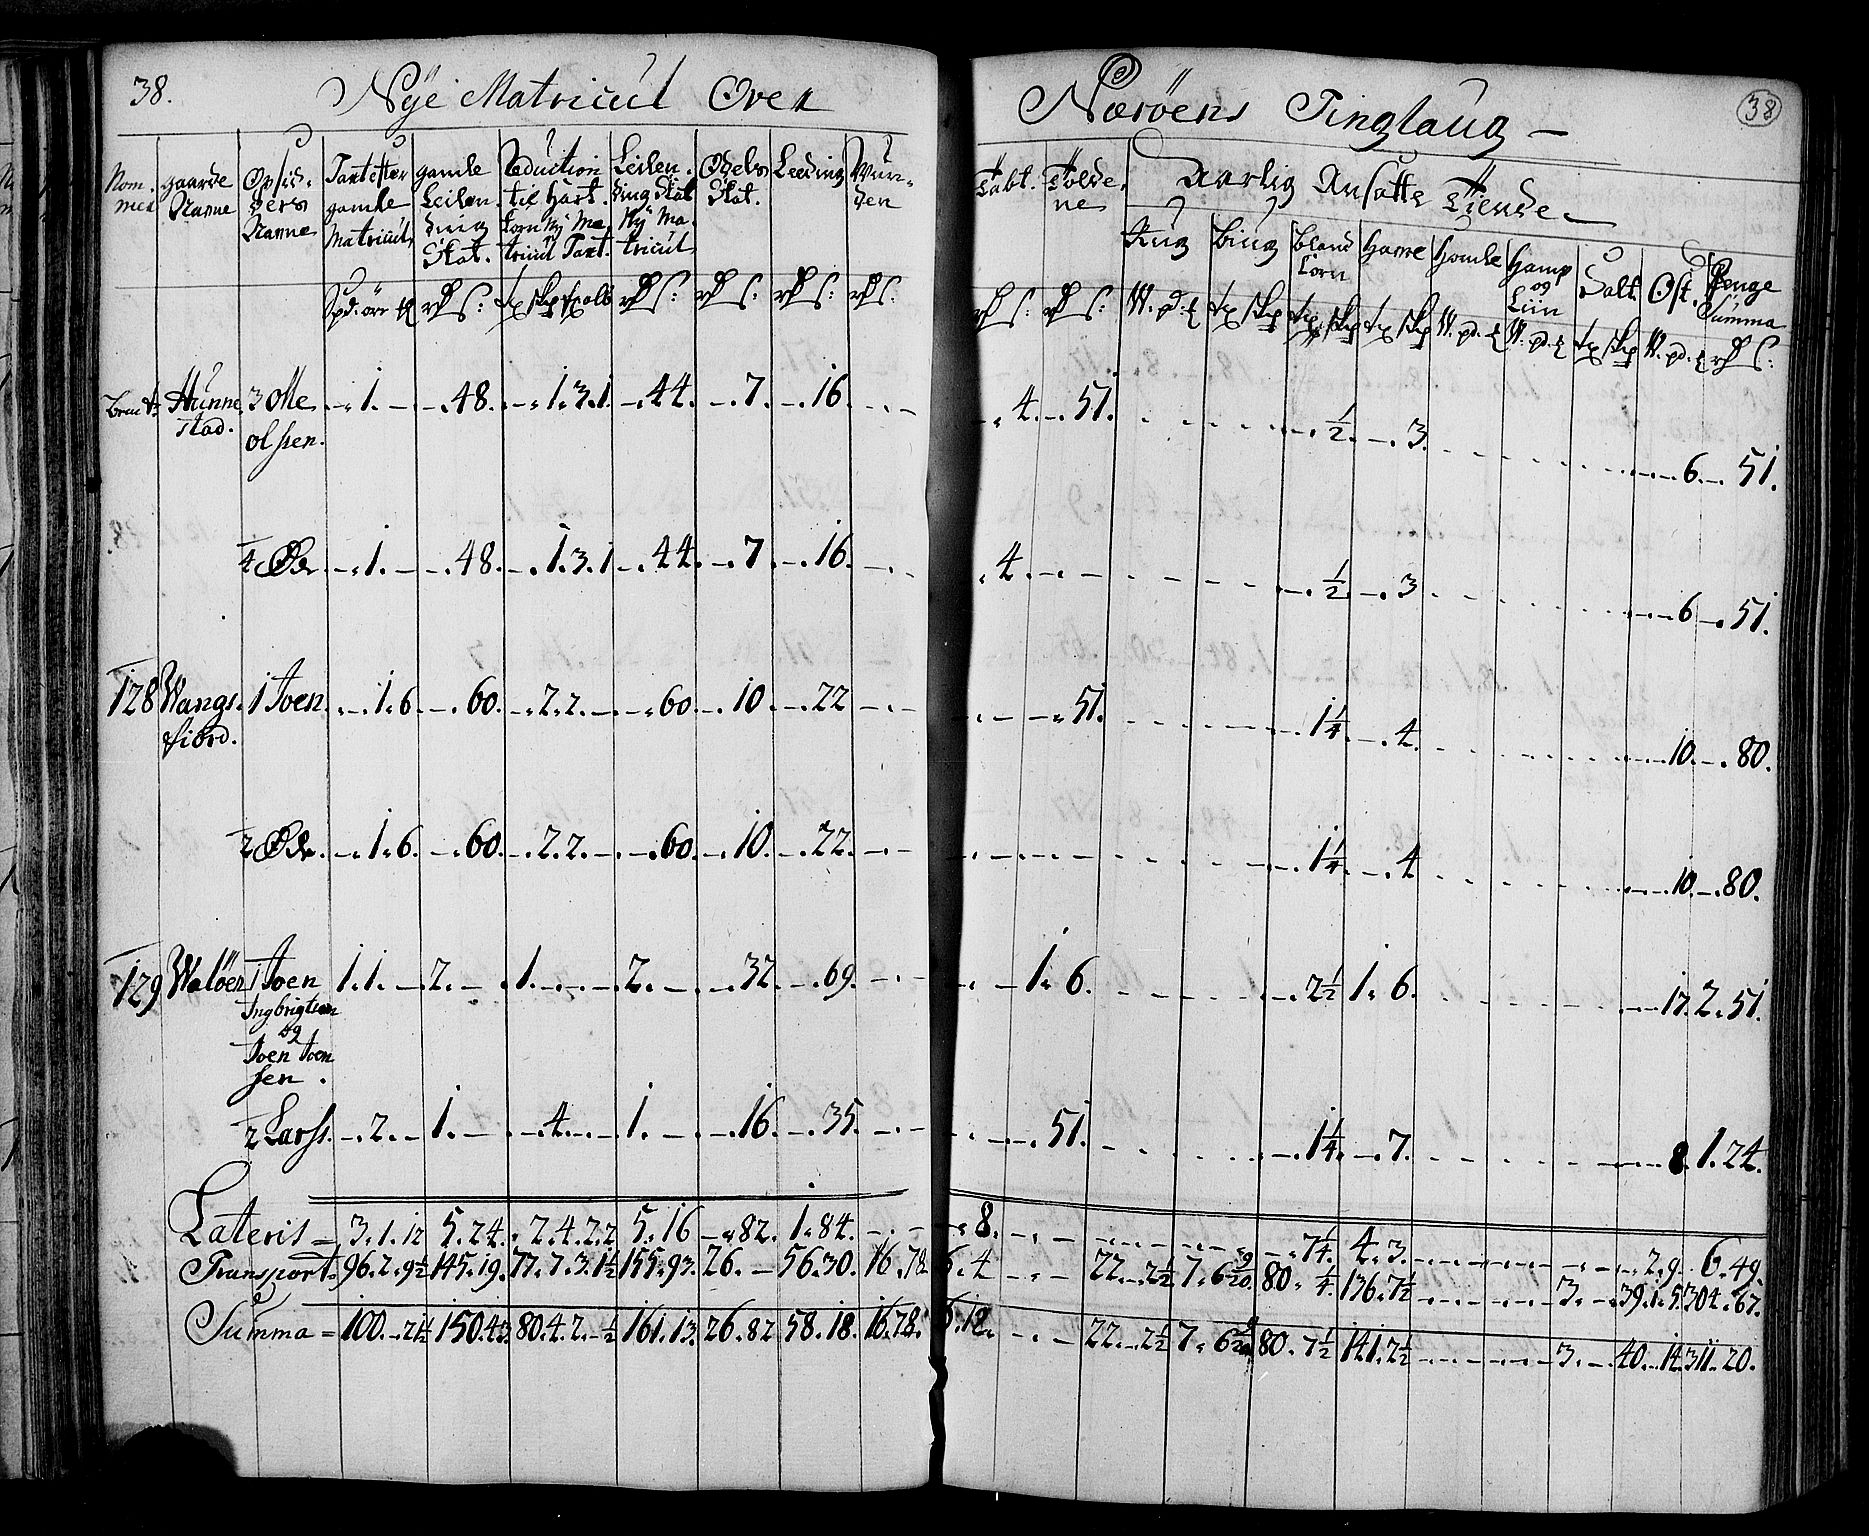 38. Nÿe Matricul Over Nærøens Tinglaug — 38
Nom. mer | gaarde Nafne | Opsid. deres Nafne | Taxt efter gamle Matricul | gamle Leilen. ding Skat. | Reduction til hart. korn Nÿ Ma. tricul Taxt. | Leilen. ding Skat Nÿ Ma. tricul | Odels Skat. | Leeding
Aarlig Ansatte Tiende
Rug | Biug | Bland korn | Hafre | Homle | Hamp og Liin | Salt | Ost. | Penge Summa
Hunne stad. | 3 Olle olssen. | 1. | 48. | 1.3.1 | 44. | 7. | 16 | 4. | 51. | ½. | 3. | 6. | 51.
4 Øde | 1. | 48. | 1.3.1 | 44. | 7 | 16. | 4. | ½. | 3 | 6 | 51.
128 | Wangs. fiord. | 1 Joen | 1.6 | 60. | 2.2. | 60. | 10. | 22 | 51. | 1¼. | 4. | 10. | 80.
2 Øde. | 1.6. | 60. | 2.2. | 60. | 10. | 22. | 1¼. | 4 | 10. | 80.
129 | Waløen | 1 Joen Ingbrigtsen og Joen Joen sen. | 1.1. | 2. | 1. | 2. | 32. | 69. | 1. 6. | 2½ | 1. 6. | 17. | 2. 51.
2 Larss. | 2. | 1. | 4. | 1. | 16. | 35. | 51. | 1¼. | 7. | 8. | 1. 24.
Lateris = | 3. 1. 12 | 5. 24. | 2. 4. 2. 2 | 5. 16 | 82. | 1. 84. | 8. | 7¼. | 4. 3. | 2. 9. | 6. 49.
Transport = | 96. 2. 9½ | 145. 19. | 77. 7. 3. 1½ | 155. 93. | 26. — | 56. 30. | 16. 78 | 6. 4 | 22. 2½ | 7. 6 9/20. | 80. ¼. | 136. 7½ | 3. | 39. 1. 5. | 304. 67.
Summa = | 100. 21½ | 150. 43. | 80. 4. 2. ½ | 161. 13. | 26. 82 | 58. 18. | 16. 78. | 6. 12. | 22. 2½ | 80. 7½ | 141. 2½ | 3. | 40. 14. | 311. 20.